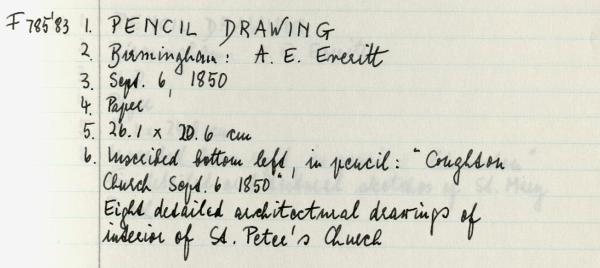 F785'83 1. PENCIL DRAWING
2. Birmingham: A. E. Everitt
3. Sept. 6, 1850
4. Paper
5. 26.1 x 20.6 cm
6. Inscribed bottom left, in pencil: "Coughton
Church Sept. 6 1850"
Eight detailed architectural drawings of
interior of St. Peter's Church